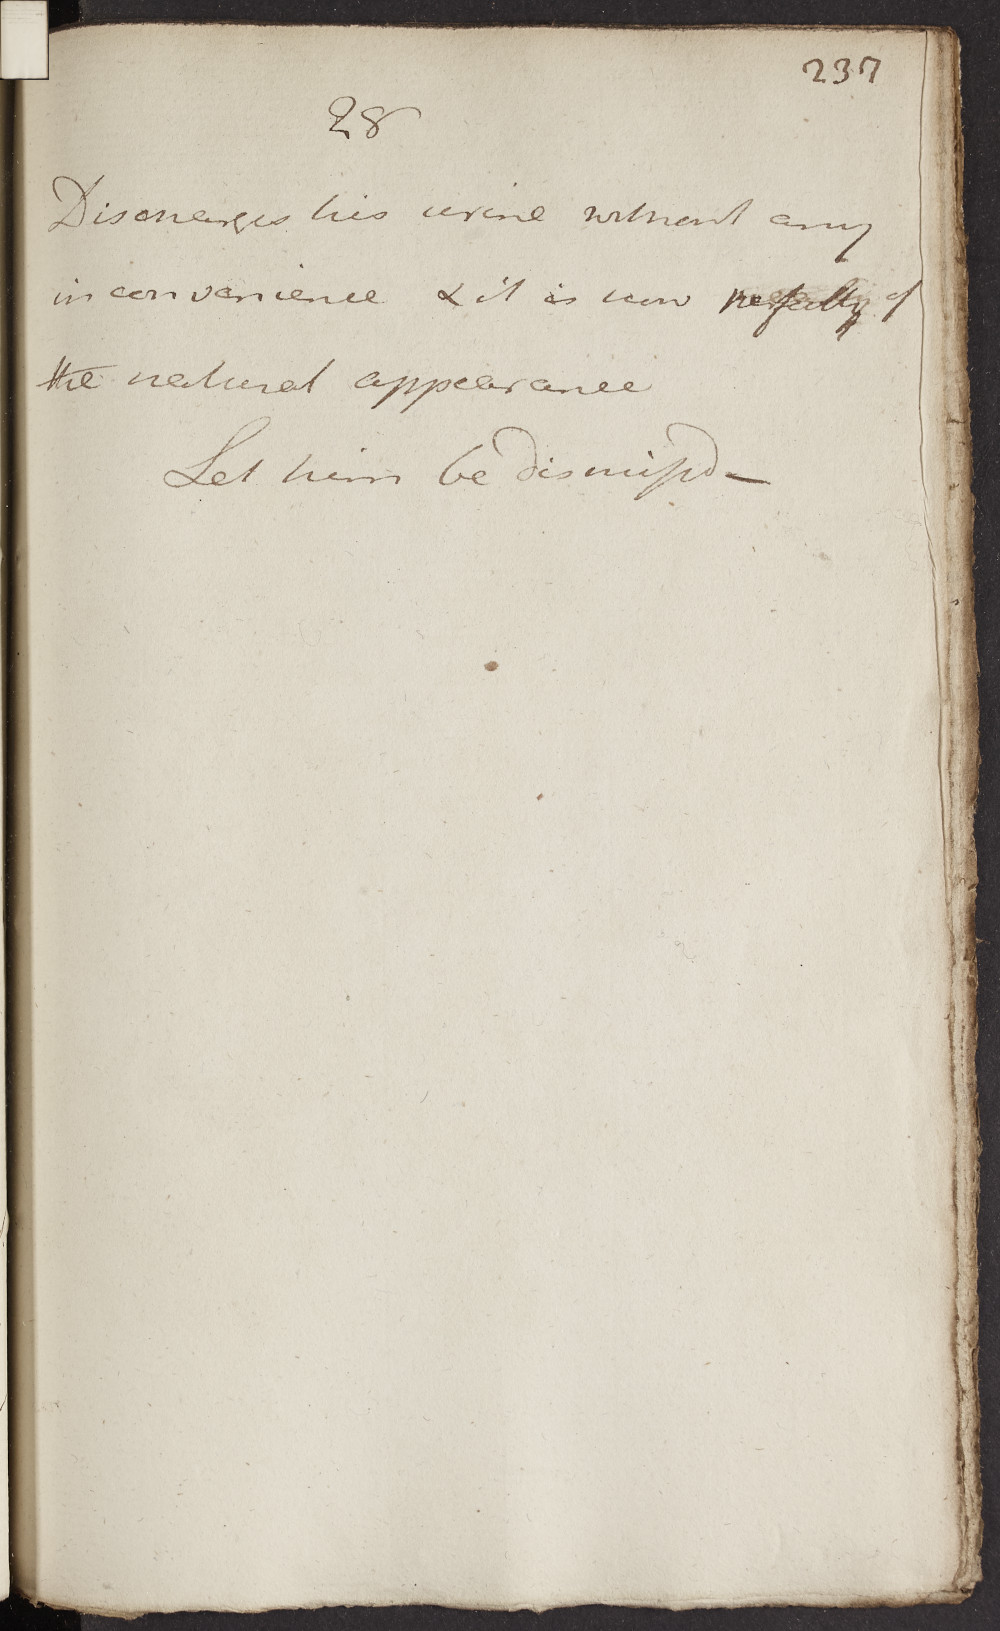 237
28
Discharges his urine without any
inconvenience & it is now perfectly of
the natural appearance
Let him be dismissd -